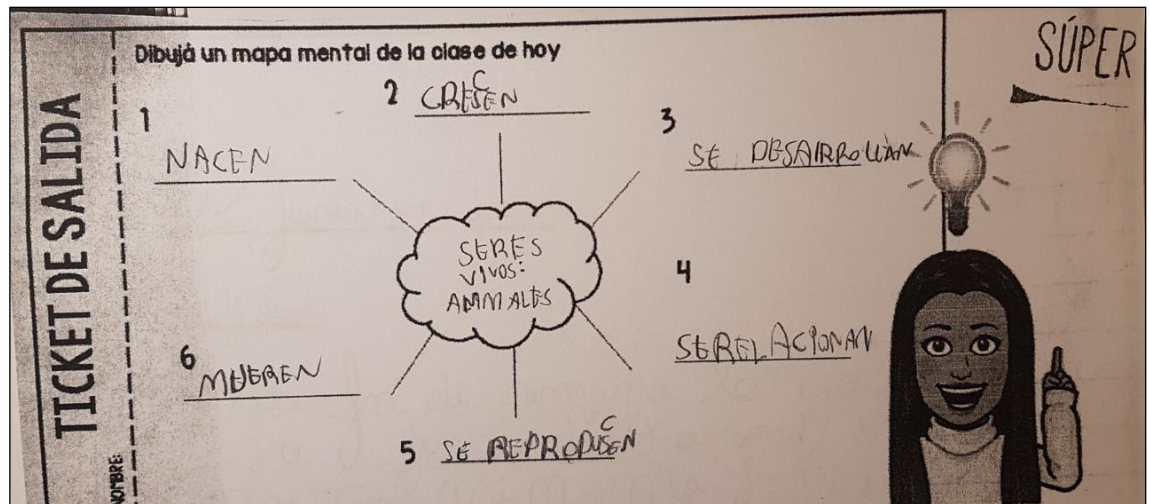 TICKET DE SALIDA
NOMBRE:
Dibujá un mapa mental de la clase de hoy
SÚPER
1
NACEN
2 CRESEN
C
3
SE DESAIRROLLAN
SERES
VIVOS:
ANIMALES
4
SERELACIONAN
5 SE REPRODUSEN
C
6
MUEREN